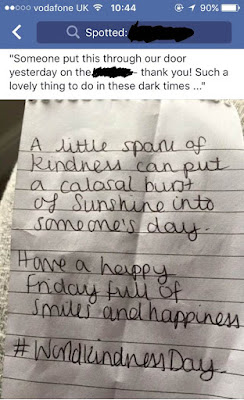 vodafone UK 10:44 90%
Spotted:
"Someone put this through our door
yesterday on the - thank you! Such a
lovely thing to do in these dark times ..."
A little spark of
kindness can put
a calosal burst
of Sunshine into
someone's day.
Have a happy
Friday full of
smiles and happiness
#WorldkindnessDay.